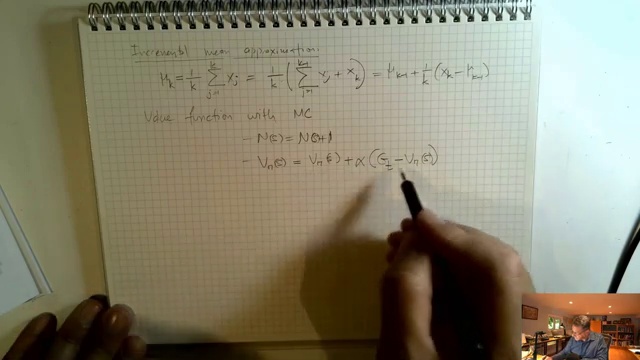 Incremental mean approximation:
μ_k = 1/k ∑_{j=1}^{k} x_j = 1/k ( ∑_{j=1}^{k-1} x_j + x_k ) = μ_{k-1} + 1/k ( x_k - μ_{k-1} )
Value function with MC
- N(s) = N(s)+1
- V_π(s) = V_π(s) + α ( G_t - V_π(s) )